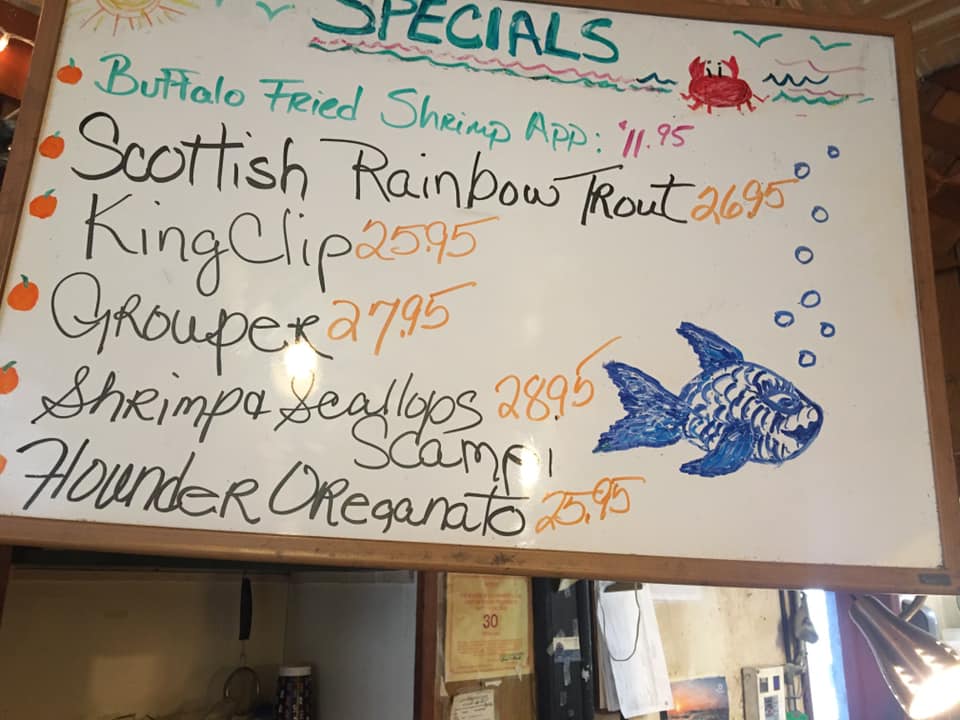 SPECIALS
Buffalo Fried Shrimp App: $11.95
Scottish Rainbow Trout 26.95
King Clip 25.95
Grouper 27.95
Shrimp & Scallops 28.95
Scampi
Flounder Oreganato 25.95
30